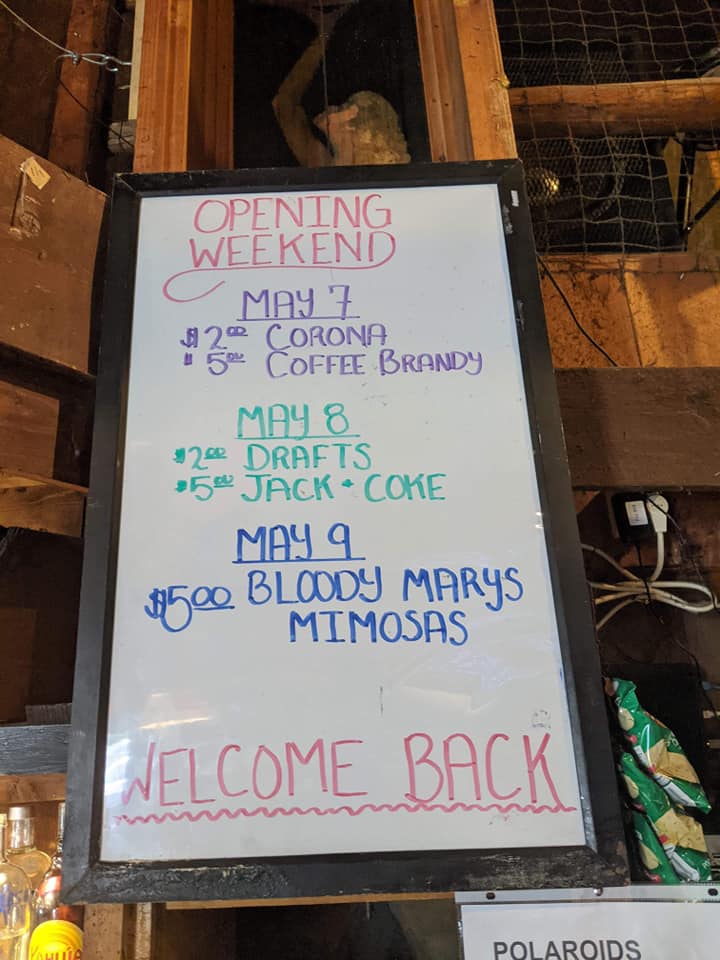 OPENING
WEEKEND
MAY 7
$2.00 CORONA
$5.00 COFFEE BRANDY
MAY 8
$2.00 DRAFTS
$5.00 JACK + COKE
MAY 9
$5.00 BLOODY MARYS
MIMOSAS
WELCOME BACK
KAHLÚA
POLAROIDS